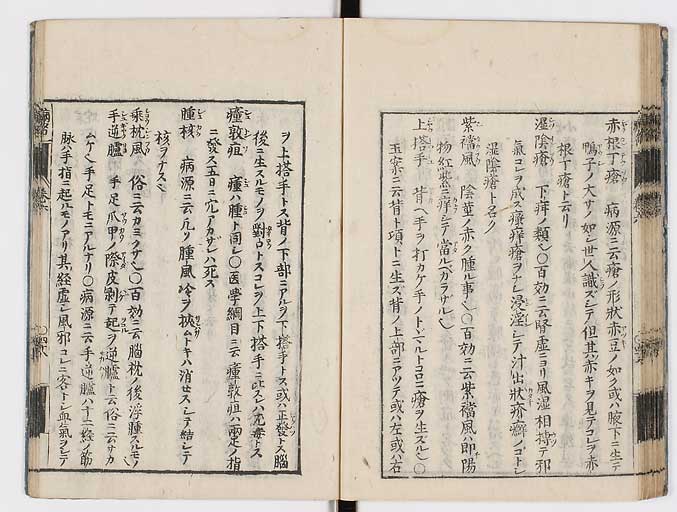 赤根丁瘡 病源ニ云瘡ノ形狀赤豆ノ如ク或ハ腋下ニ生テ
鴨子ノ大サノ如シ世人識ズシテ但其赤キヲ見テコレヲ赤
根丁瘡ト云リ
湿陰瘡 下疳ノ類也〇百効ニ云腎虚ニヨリ風湿相搏テ邪
氣コレヲ成ス癢痒瘡ヲナシ浸淫シテ汁出狀疥癬ノゴトシ
湿陰瘡ト名ク
紫襠風 陰莖ノ赤ク腫ル事也〇百効ニ云紫襠風ハ即陽
物紅紫ニ痒シテ當ルベカラザル也
上搭手 背ヘ手ヲ打カケ手ノトヾマル所ニ瘡ヲ生ズル也〇
玉案ニ云背ト項トニ生ズ背ノ上部ニアツテ或ハ左或ハ右
ヲ上搭手トス背ノ下部ニアルヲ下搭手トス或ハ正發トス腦
後ニ生スルモノヲ對口トスコレヲ上下搭手ニ比スレハ尤毒トス
瘇敦疽 瘇ハ腫ト同シ〇医學綱目ニ云瘇敦疽ハ兩足ノ指
ニ發ス五日ニ穴アカザレハ死ス
腫核 病源ニ云凡ソ腫風冷ヲ挾トキハ消セスシテ結シテ
核ヲナス也
乘枕風 俗ニ云カミクサ也〇百効ニ云腦枕ノ後浮腫スルモノ
手逆臚 手足爪甲ノ際皮剥テ起ヲ逆臚ト云俗ニ云サカ
ムケ也手足トモニアルナリ〇病源ニ云手逆臚ハ十二經ノ筋
脉ハ手指ニ起ルモノアリ其經虚シ風邪コレニ客トシ血氣シテ